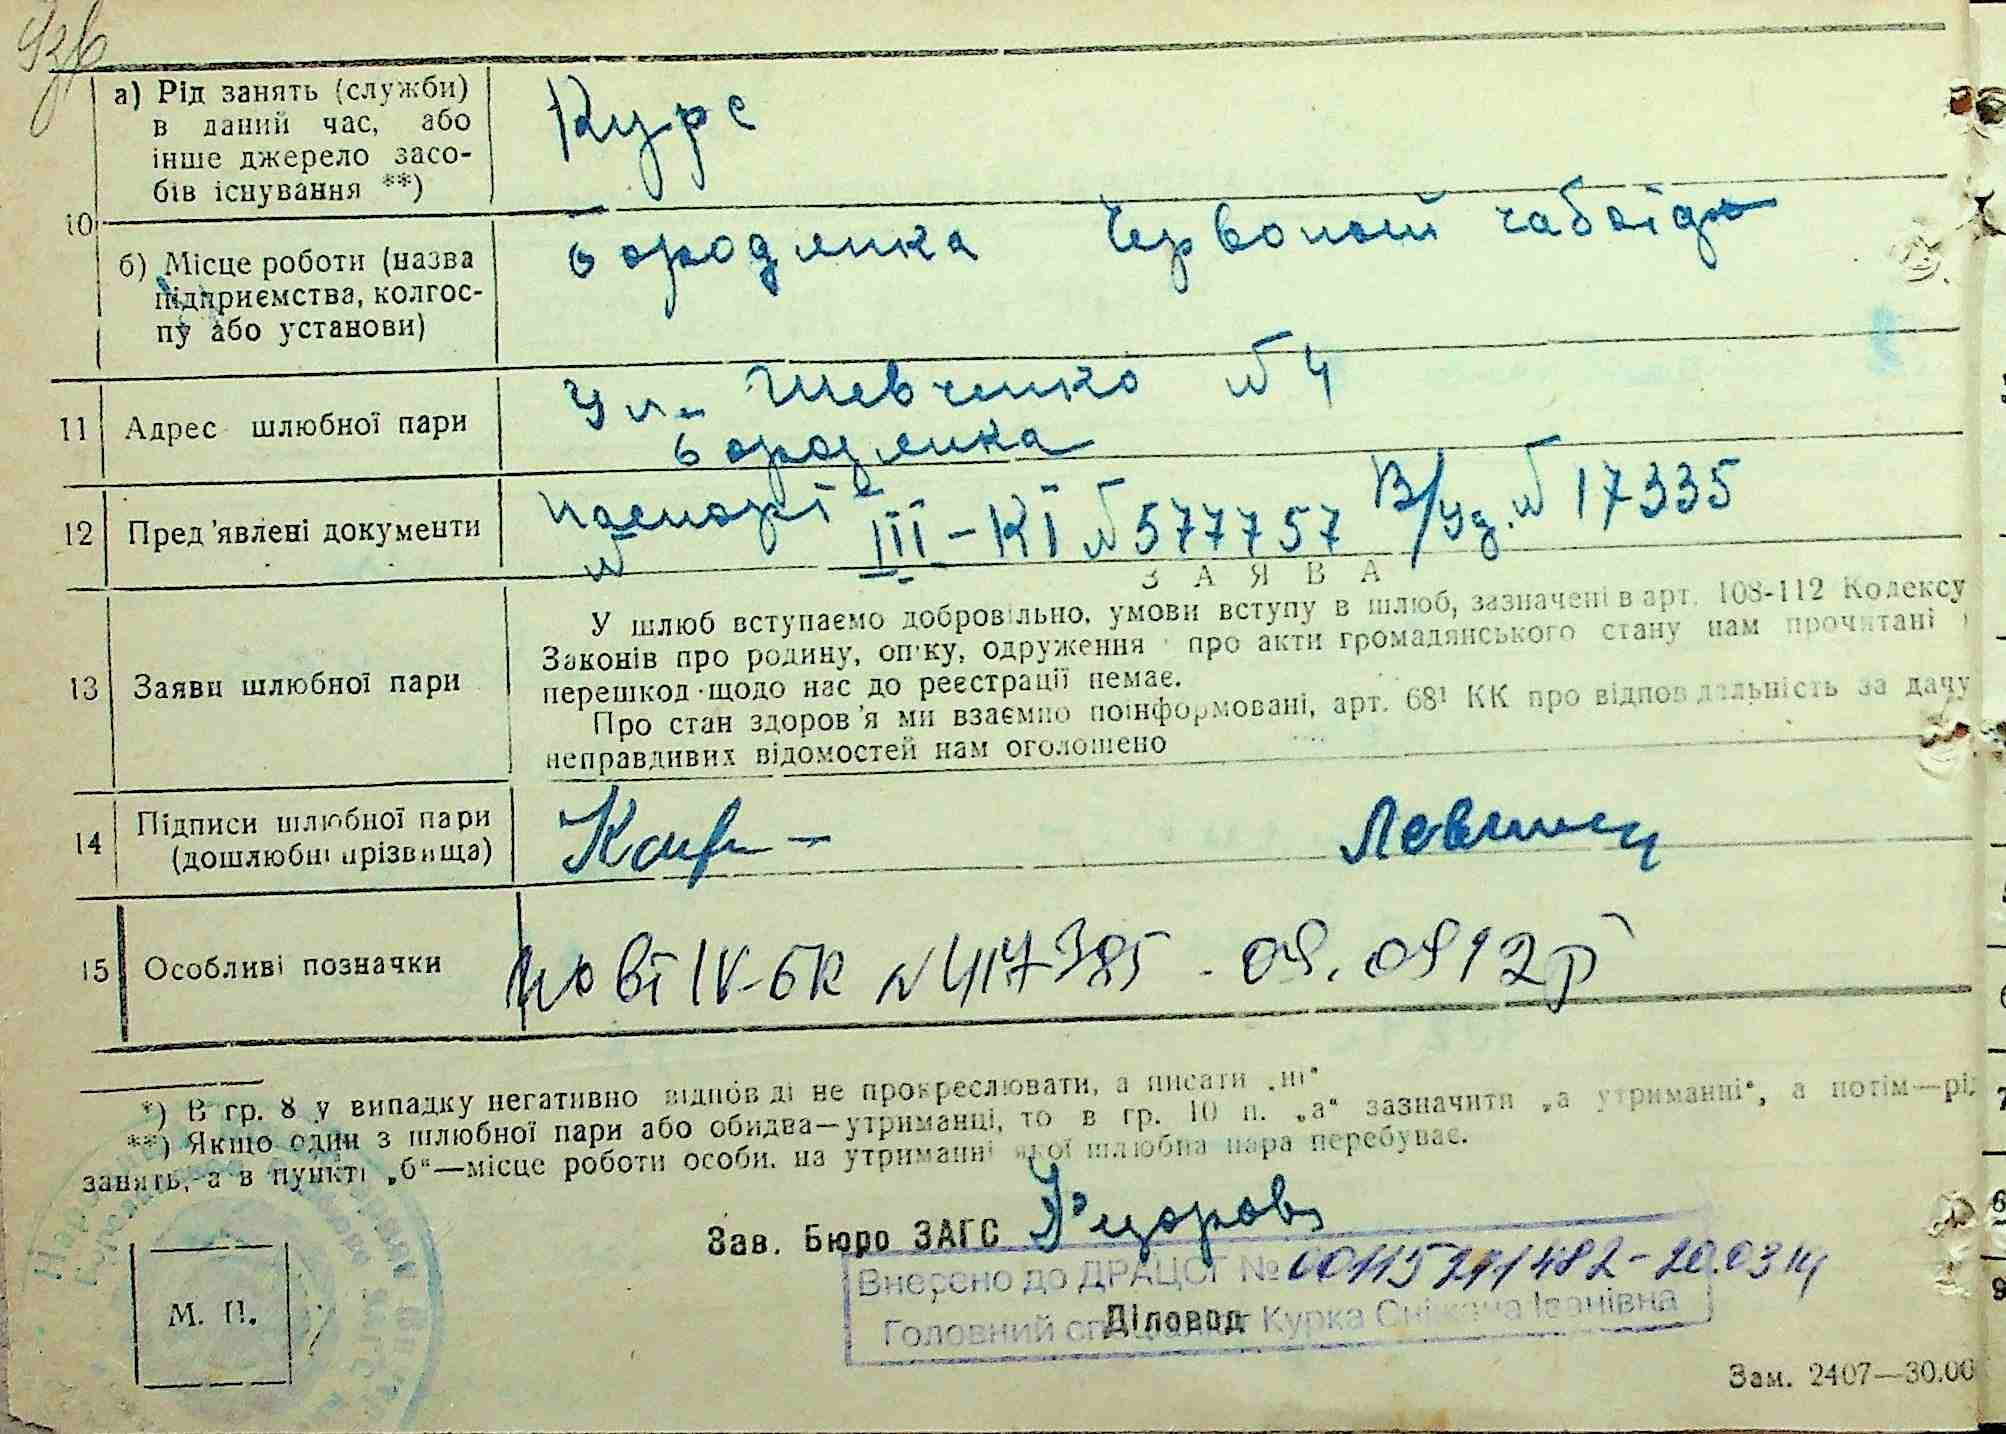 а) Рід занять (служби)
в даний час, або
інше джерело засо-
бів існування **)
Курс
10
б) Місце роботи (назва
підприємства, колгос-
пу або установи)
бородянка Червоний
11 Адрес шлюбної пари
Ул. Шевченко № 4
бородянка
12 Пред'явлені документи
паспорт III-КІ №577757 В/уд. № 17335
№
З А Я В А
13 Заяви шлюбної пари
У шлюб вступаємо добровільно, умови вступу в шлюб, зазначені в арт. 108-112 Кодексу
Законів про родину, опіку, одруження про акти громадянського стану нам прочитані і
перешкод щодо нас до реєстрації немає.
Про стан здоров'я ми взаємно поінформовані, арт. 68¹ КК про відповідальність за дачу
неправдивих відомостей нам оголошено
14 Підписи шлюбної пари
(дошлюбні прізвища)
15 Особливі позначки
повт IV-БК №417385 - 09.0912р
*) В гр. 8 у випадку негативно відповіді не прокреслювати, а писати „ні“
**) Якщо один з шлюбної пари або обидва—утриманці, то в гр. 10 п. „а“ зазначити „а утриманні“, а потім—рід
занять, а в пункті „б“—місце роботи особи, на утриманні якої шлюбна пара перебуває.
Зав. Бюро ЗАГС
Внесено до ДРАЦСГ № 00115291482-20.03.14
Діловод
Головний спеціаліст Курка Сніжана Іванівна
М. П.
Зам. 2407—30.00